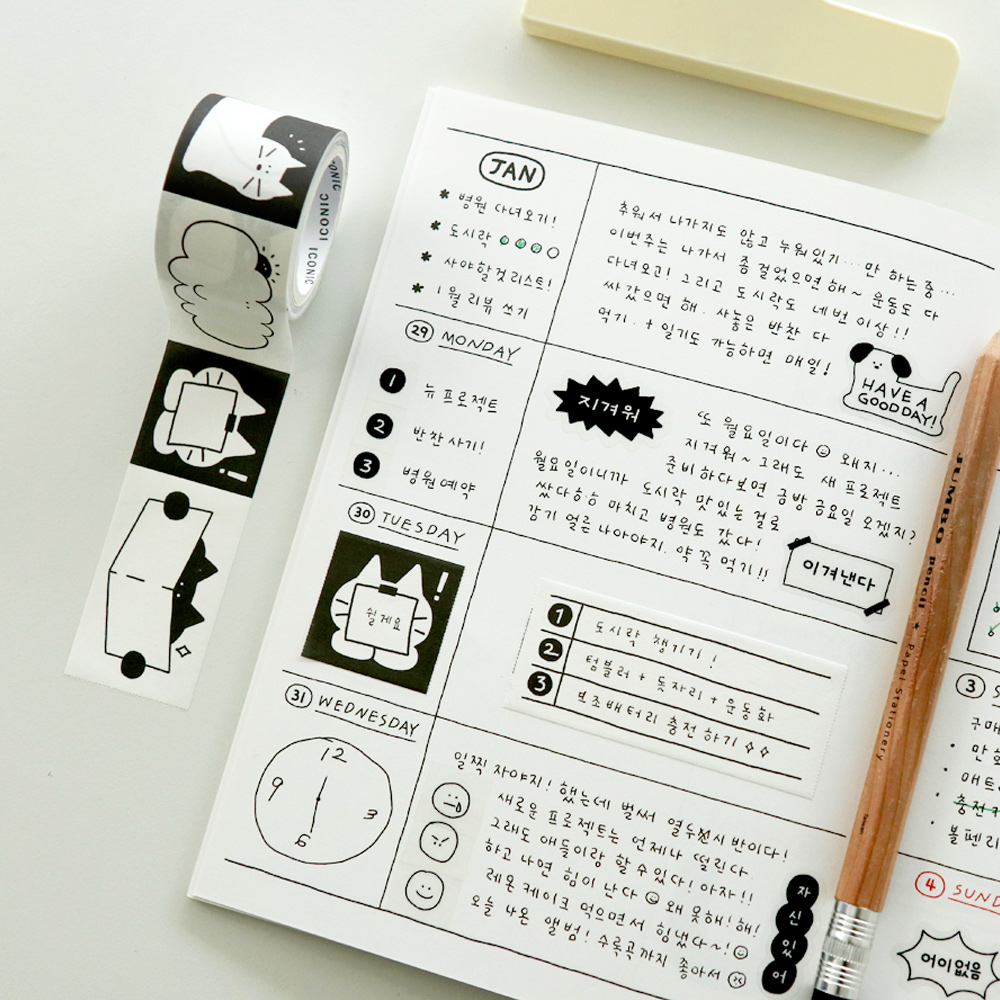 ICONIC
ICONIC
JAN
* 병원 다녀오기!
* 도시락
* 사야할것리스트!
* 1월 리뷰 쓰기
추워서 나가지도 않고 누워있기... 만 하는 중...
이번주는 나가서 좀 걸었으면 해~ 운동도 다
다녀오고! 그리고 도시락도 네번 이상!!
싸갔으면 해. 사놓은 반찬 다
먹기. + 일기도 가능하면 매일!
HAVE A
GOOD DAY!
29 MONDAY
1 뉴 프로젝트
2 반찬 사기!
3 병원예약
지겨워
또 월요일이다 왜지...
지겨워~ 그래도 새 프로젝트
준비하다보면 금방 금요일 오겠지?
월요일이니까 도시락 맛있는 걸로
쌌다 마치고 병원도 갔다!
감기 얼른 나아야지. 약 꼭 먹기!!
이겨낸다
30 TUESDAY
!
쉴게요
1 도시락 챙기기!
2 텀블러 + 돗자리 + 운동화
3 보조배터리 충전하기
31 WEDNESDAY
12
3
6
9
일찍 자야지! 했는데 벌써 열두시 반이다!
새로운 프로젝트는 언제나 떨린다.
그래도 애들이랑 할 수 있다! 아자!!
하고 나면 힘이 난다 왜 못해! 해!
레몬 케이크 먹으면서 힘냈다~!
오늘 나온 앨범! 수록곡까지 좋아서
자
신
있
어
JUMBO pencil * Papel Stationery
3 S
구매
• 만
• 매트
• 충전
• 볼펜 리
4 SUND
어이없음